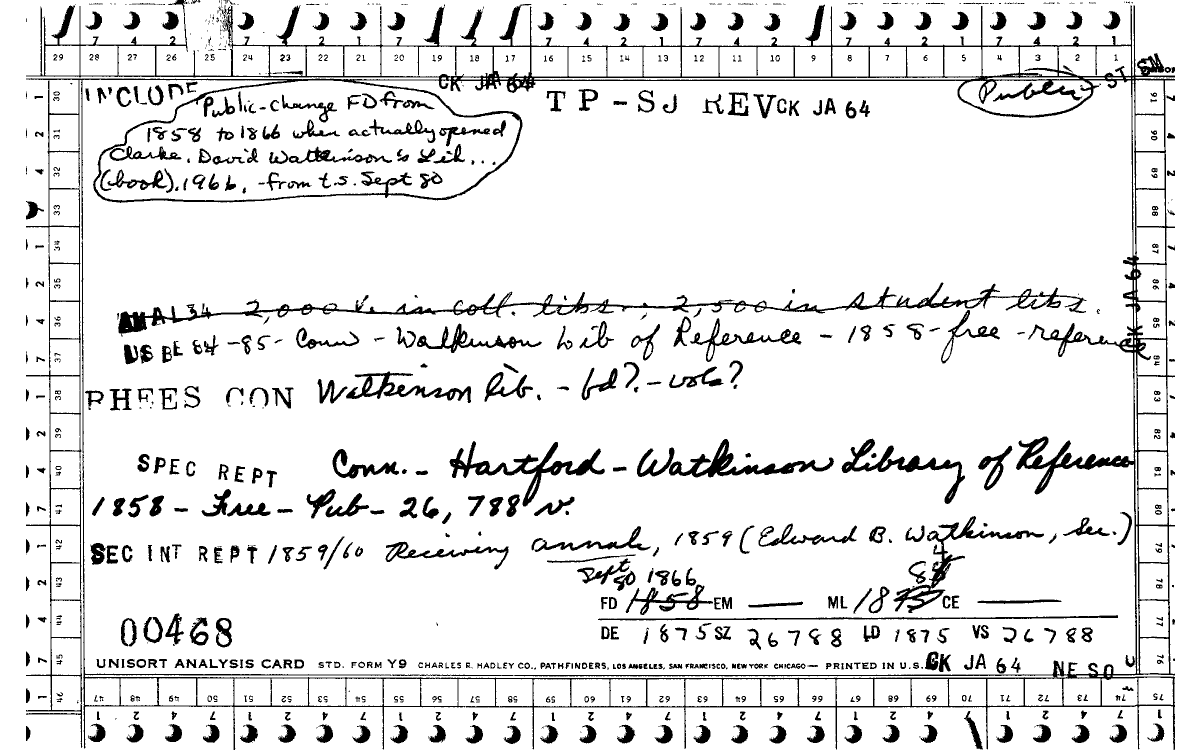 7 4 2 7 4 2 1 7 4 2 1 7 4 2 1 7 4 2 1 7 4 2 1 7 4 2 1
29 28 27 26 25 24 23 22 21 20 19 18 17 16 15 14 13 12 11 10 9 8 7 6 5 4 3 2 1
INCLUDE CK JA 64 TP-SJ REV CK JA 64 Public ST
Public-change FD from
1858 to 1866 when actually opened
Clarke. David Watkinson's Lib...
(book). 1966, -from t.s. Sept 80
ANAL34 2,000 v. in coll. libs.; 2,500 in student libs.
US BE 84-85- Conn - Watkinson Lib of Reference - 1858-free-reference
RHEES CON Watkinson lib. - fd? - vols?
SPEC REPT Conn. - Hartford - Watkinson Library of Reference
1858 - Free - Pub - 26,788 v.
SEC INT REPT 1859/60 Receiving annals, 1859 (Edward B. Watkinson, Sec.)
Sept 80 1866 84
FD 1858 EM — ML 1875 CE —
00468
DE 1875 SZ 26788 LD 1875 VS 26788
UNISORT ANALYSIS CARD STD. FORM Y9 CHARLES R. HADLEY CO., PATHFINDERS, LOS ANGELES, SAN FRANCISCO, NEW YORK CHICAGO — PRINTED IN U.S. CK JA 64 NE SO U
30 31 32 33 34 35 36 37 38 39 40 41 42 43 44 45 46
91 90 89 88 87 86 85 84 83 82 81 80 79 78 77 76
CK JA 64
47 48 49 50 51 52 53 54 55 56 57 58 59 60 61 62 63 64 65 66 67 68 69 70 71 72 73 74 75
1 2 4 7 1 2 4 7 1 2 4 7 1 2 4 7 1 2 4 7 1 2 4 7 1 2 4 7 1